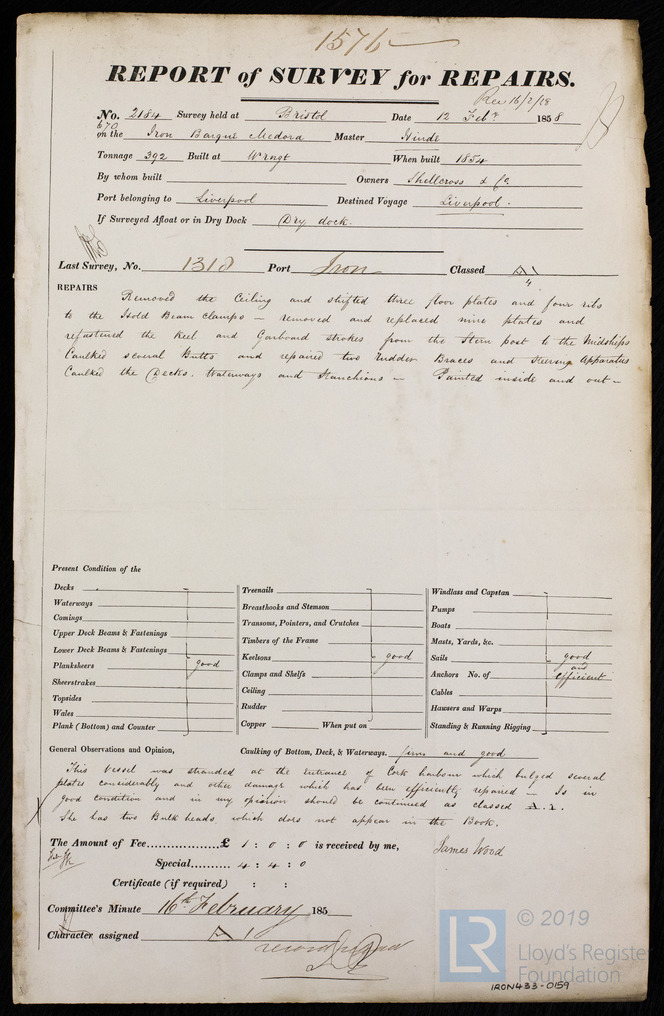 1576
REPORT of SURVEY for REPAIRS.
Rec 16/2/58
No. 2184 Survey held at Bristol Date 12 Feby 1858
670
on the Iron Barque Medora Master Hinde
Tonnage 392 Built at Wrngt When built 1854
By whom built Owners Shellcross & Co.
Port belonging to Liverpool Destined Voyage Liverpool.
If Surveyed Afloat or in Dry Dock Dry dock.
Last Survey, No. 1318 Port Iron Classed A1
4
REPAIRS Removed the Ceiling and shifted three floor plates and four ribs
to the Hold Beam clamps – removed and replaced nine plates and
refastened the Keel and Garboard strokes from the Stern post to the Midships
Caulked several Butts and repaired two Rudder Braces and Steering Apparatus
Caulked the Decks. Waterways and Stanchions – Painted inside and out –
Present Condition of the
Decks
Waterways
Comings
Upper Deck Beams & Fastenings
Lower Deck Beams & Fastenings
Planksheers good
Sheerstrakes
Topsides
Wales
Plank (Bottom) and Counter
Treenails
Breasthooks and Stemson
Transoms, Pointers, and Crutches
Timbers of the Frame
Keelsons good
Clamps and Shelfs
Ceiling
Rudder
Copper When put on
Windlass and Capstan
Pumps
Boats
Masts, Yards, &c.
Sails good
and
Anchors No. of efficient
Cables
Hawsers and Warps
Standing & Running Rigging
General Observations and Opinion, Caulking of Bottom, Deck, & Waterways. firm and good
This Vessel was stranded at the entrance of Cork harbour which bulged several
plates considerably and other damage which has been efficiently repaired – Is in
good condition and in my opinion should be continued as classed A.1.
She has two Bulk heads which does not appear in the Book.
The Amount of Fee £ 1 : 0 : 0 is received by me, James Wood
Special 4 : 4 : 0
Certificate (if required) : :
Committee's Minute 16th February 185
Character assigned A 1
© 2019
LR
Lloyd's Register
Foundation
IRON433-0159